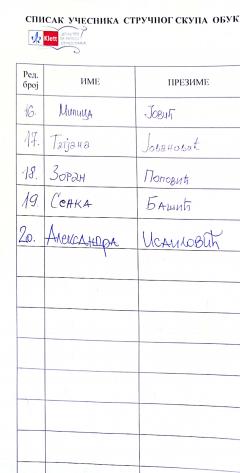 СПИСАК УЧЕСНИКА СТРУЧНОГ СКУПА ОБУК
Klett
Ред. број ИМЕ ПРЕЗИМЕ
16. Милица Јовић
17. Татјана Јовановић
18. Зоран Поповић
19. Сенка Башић
20. Александра Исаиловић